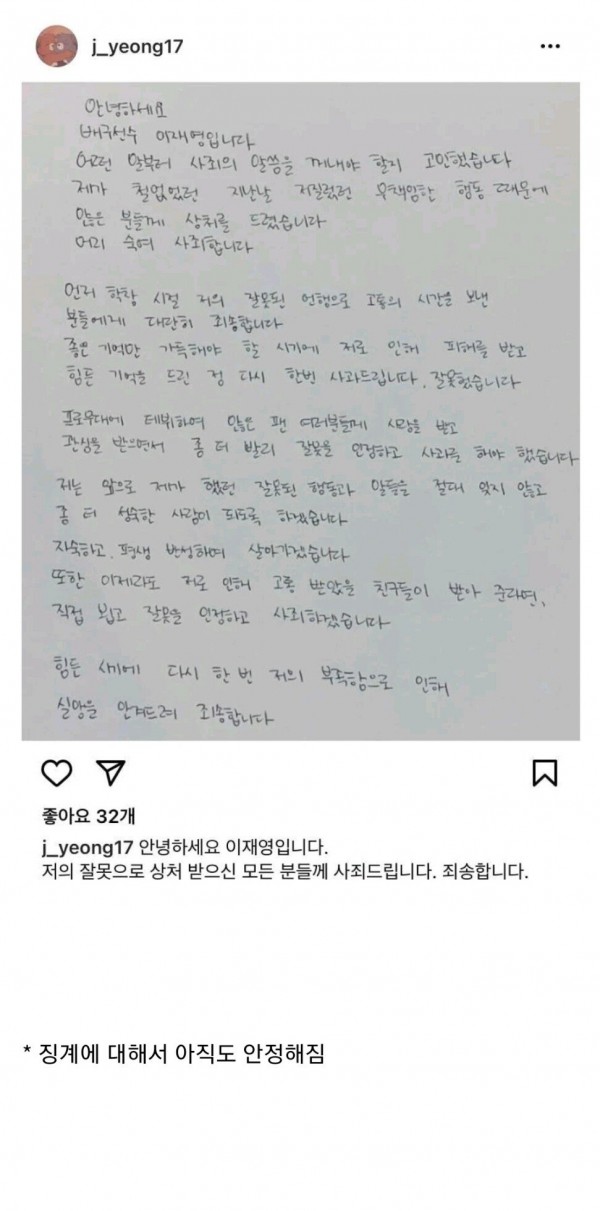 j_yeong17
안녕하세요
배구선수 이재영입니다
어떤 말부터 사죄의 말씀을 꺼내야 할지 고민했습니다
제가 철없었던 지난날 저질렀던 무책임한 행동 때문에
많은 분들께 상처를 드렸습니다
머리 숙여 사죄합니다
먼저 학창 시절 저의 잘못된 언행으로 고통의 시간을 보낸
분들에게 대단히 죄송합니다
좋은 기억만 가득해야 할 시기에 저로 인해 피해를 받고
힘든 기억을 드린 점 다시 한번 사과드립니다. 잘못했습니다
프로무대에 데뷔하여 많은 팬 여러분들께 사랑을 받고
관심을 받으면서 좀 더 빨리 잘못을 인정하고 사과를 해야 했습니다
저는 앞으로 제가 했던 잘못된 행동과 말들을 절대 잊지 않고
좀 더 성숙한 사람이 되도록 하겠습니다
자숙하고, 평생 반성하며 살아가겠습니다
또한 이제라도 저로 인해 고통 받았을 친구들이 받아 준다면,
직접 뵙고 잘못을 인정하고 사죄하겠습니다
힘든 시기에 다시 한 번 저의 부족함으로 인해
실망을 안겨드려 죄송합니다
좋아요 32개
j_yeong17 안녕하세요 이재영입니다.
저의 잘못으로 상처 받으신 모든 분들께 사죄드립니다. 죄송합니다.
* 징계에 대해서 아직도 안정해짐